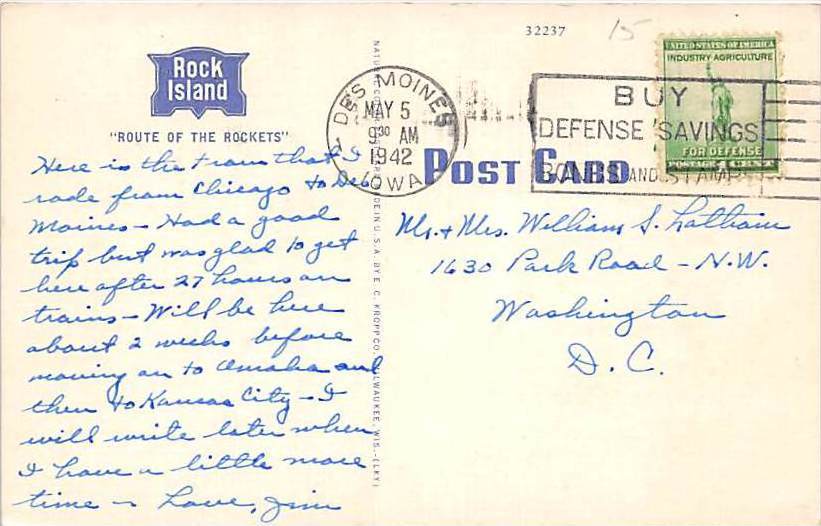 32237
15
Rock
Island
"ROUTE OF THE ROCKETS"
DES MOINES
MAY 5
9 30 AM
1942
IOWA
BUY
DEFENSE SAVINGS
BONDS AND STAMPS
UNITED STATES OF AMERICA
INDUSTRY-AGRICULTURE
FOR DEFENSE
POSTAGE 1 CENT
POST CARD
Here is the train that I
rode from Chicago to Des
Moines - Had a good
trip but was glad to get
here after 27 hours on
trains - Will be here
about 2 weeks before
moving on to Omaha and
then to Kansas City - I
will write later when
I have a little more
time - Love, Jim
Mr. + Mrs. William S. Latham
1630 Park Road - N.W.
Washington
D.C.
MADE IN U.S.A. BY E. C. KROPP CO., MILWAUKEE, WIS.